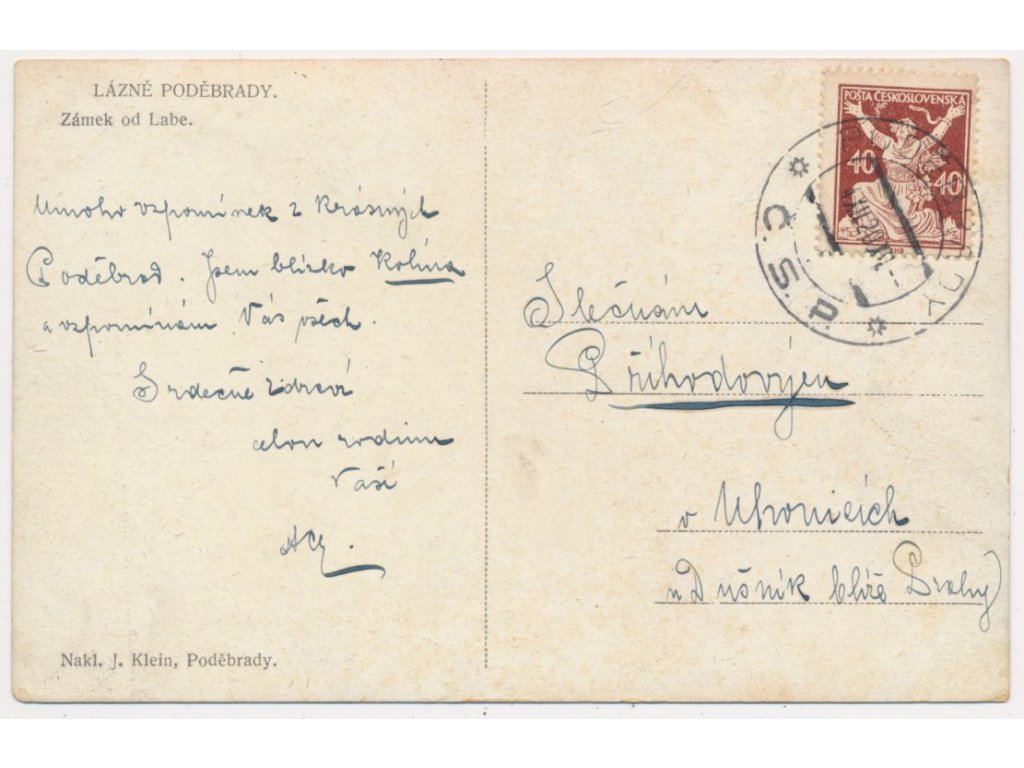 LÁZNĚ PODĚBRADY.
Zámek od Labe.
Mnoho vzpomínek z krásných
Poděbrad. Jsem blízko Kolína
a vzpomínám Vás všech.
Srdečně zdraví
celou rodinu
Vaši
Nakl. J. Klein, Poděbrady.
POŠTA ČESKOSLOVENSKÁ
40 40
Č.S.P.
Slečnám
Příhodovým
v Úhonicích
u Dušník blíže Prahy